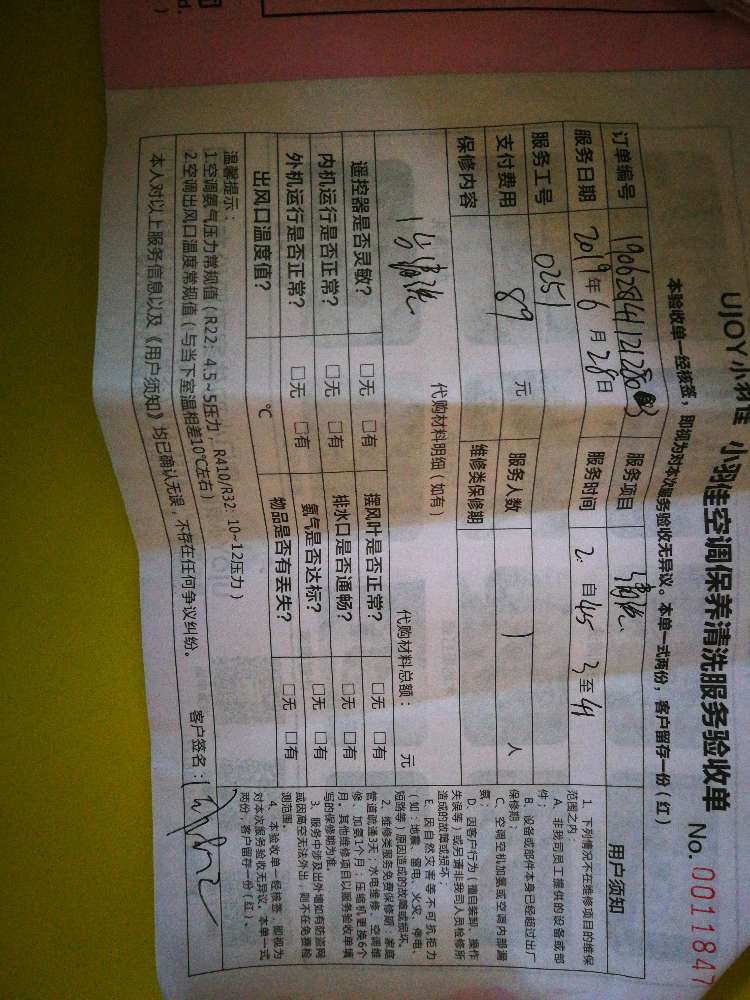 UJOY小羽佳 小羽佳空调保养清洗服务验收单 No. 0011847
本验收单一经核签，即视为对本次服务验收无异议。本单一式两份，客户留存一份（红）
订单编号 服务项目 清洗
服务日期 2019年6月28日 服务时间 2:45 自 至 3:41
服务工号 0251
支付费用 89 元 服务人数 1 人
保修内容 维修类保修期
代购材料明细（如有）
代购材料总额： 元
遥控器是否灵敏？ □无 □有 摆风叶是否正常？ □无 □有
内机运行是否正常？ □无 □有 排水口是否通畅？ □无 □有
外机运行是否正常？ □无 □有 氨气是否达标？ □无 □有
出风口温度值？ ℃ 物品是否有丢失？ □无 □有
温馨提示：
1.空调氨气压力常规值（R22：4.5~5压力，R410/R32：10~12压力）
2.空调出风口温度常规值（与当下室温相差10℃左右）
本人对以上服务信息以及《用户须知》均已确认无误，不存在任何争议纠纷。 客户签名：
用户须知
1、下列情况不在维修项目的维保
范围之内：
A、非我司员工提供的设备或部
件；
B、设备或部件本身已经超过出厂
保修期；
C、空调空机加氨或空调内部漏
氨；
D、因客户行为（擅自装卸、操作
失误等）或另请非我司人员检修所
造成的故障或损坏；
E、因自然灾害等不可抗拒力
（如：地震、雷电、火灾、停电、
短路等）原因造成的故障或损坏。
2、维修类服务免费保修期：家庭
管道疏通3天；水电维修、空调维
修、加氨1个月；压缩机更换6个
月。其他维修项目以服务验收单填
写的保修期为准。
3、服务中涉及出外墙如有防盗网
或因高空无法外出，则不在免费检
测范围。
4、本验收单一经核签，即视为
对本次服务验收无异议。本单一式
两份，客户留存一份（红）、